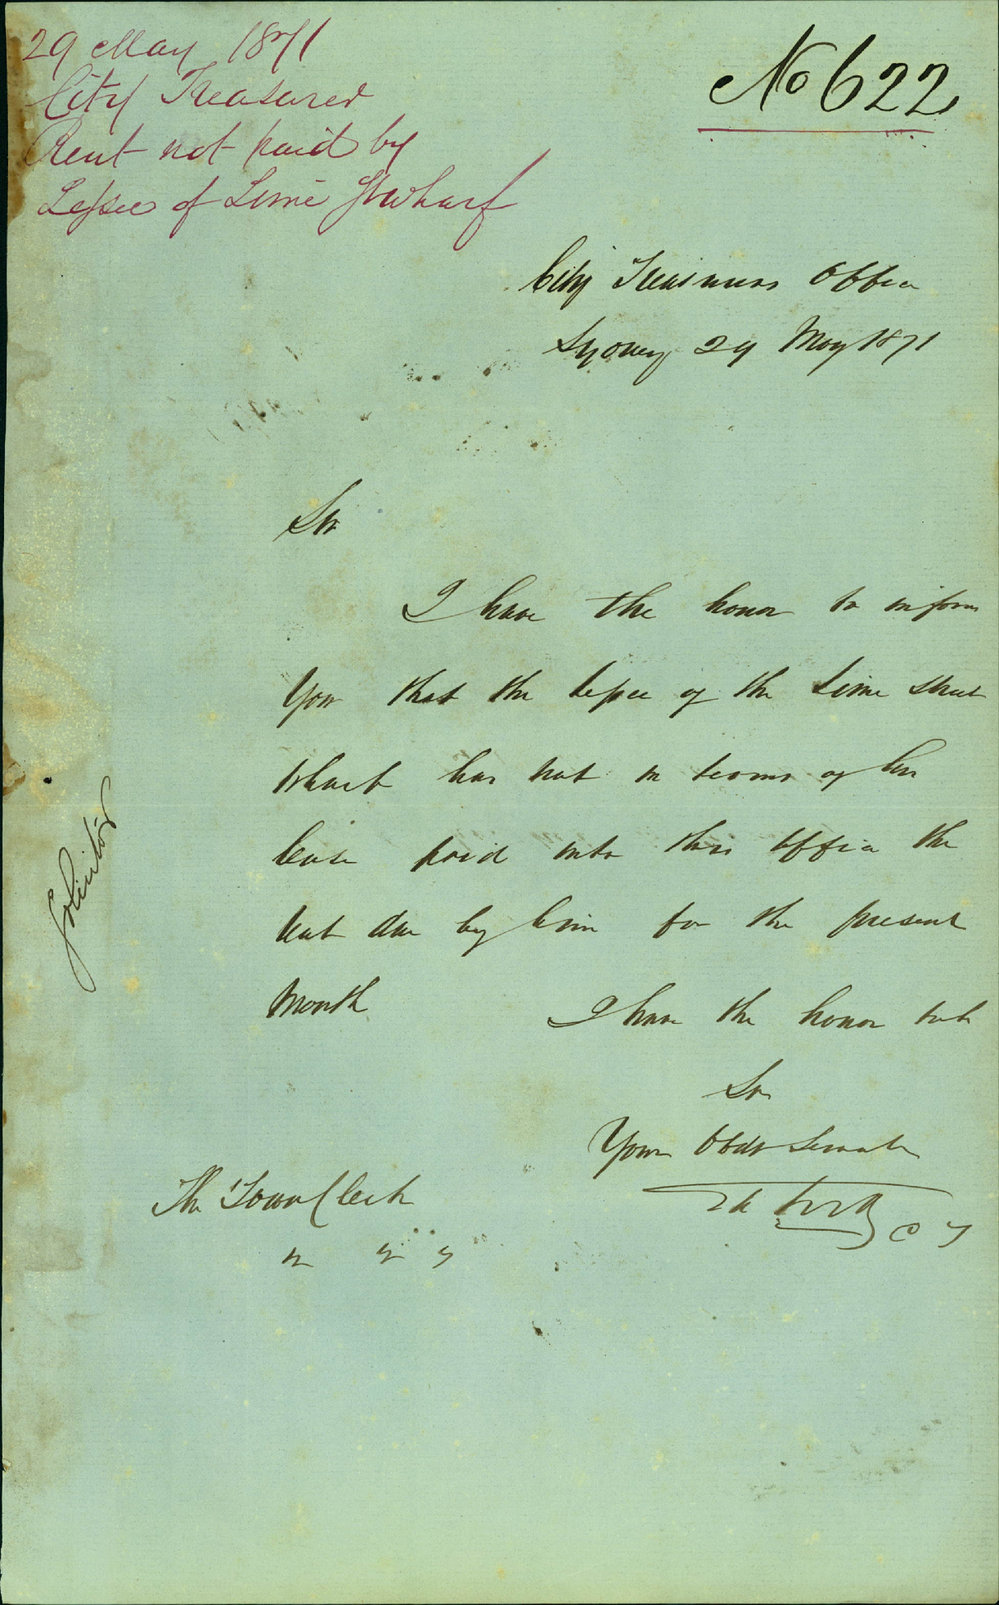 29 May 1871
City Treasurer
Rent not paid by
Lessee of Lime St Wharf
No 622
City Treasurers Office
Sydney 29 May 1871
Sir
I have the honor to inform
You that the lessee of the Lime Street
Wharf has not in terms of his
lease paid into this Office the
rent due by him for the present
Month
I have the honor to be
Sir
Your Obdt Servant
C T
The Town Clerk
Solicitor